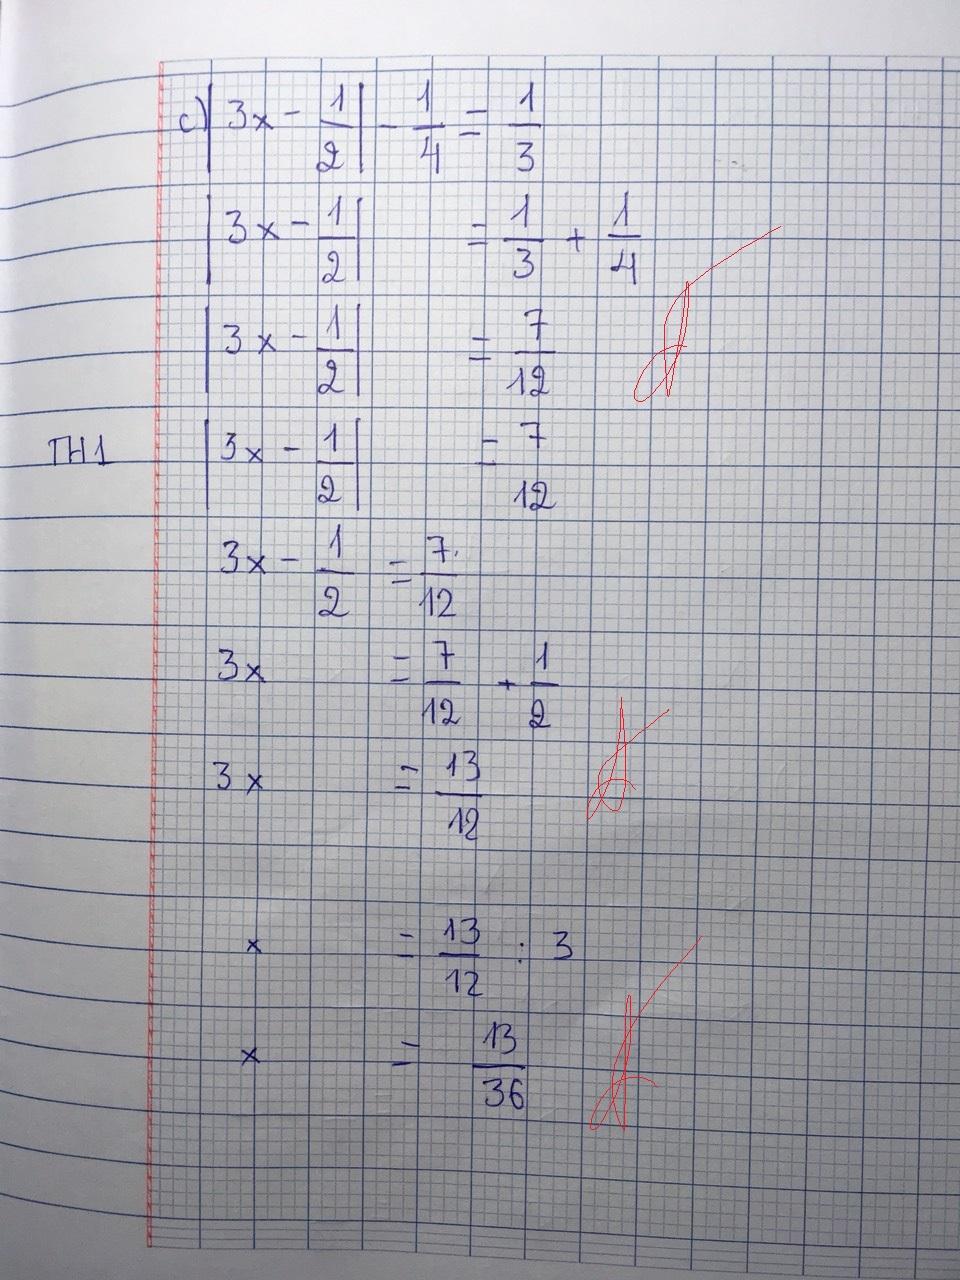 c) |3x - 1/2| - 1/4 = 1/3
|3x - 1/2| = 1/3 + 1/4
|3x - 1/2| = 7/12
TH1 |3x - 1/2| = 7 12
3x - 1/2 = 7/12
3x = 7/12 + 1/2
3x = 13/12
x = 13/12 : 3
x = 13/36